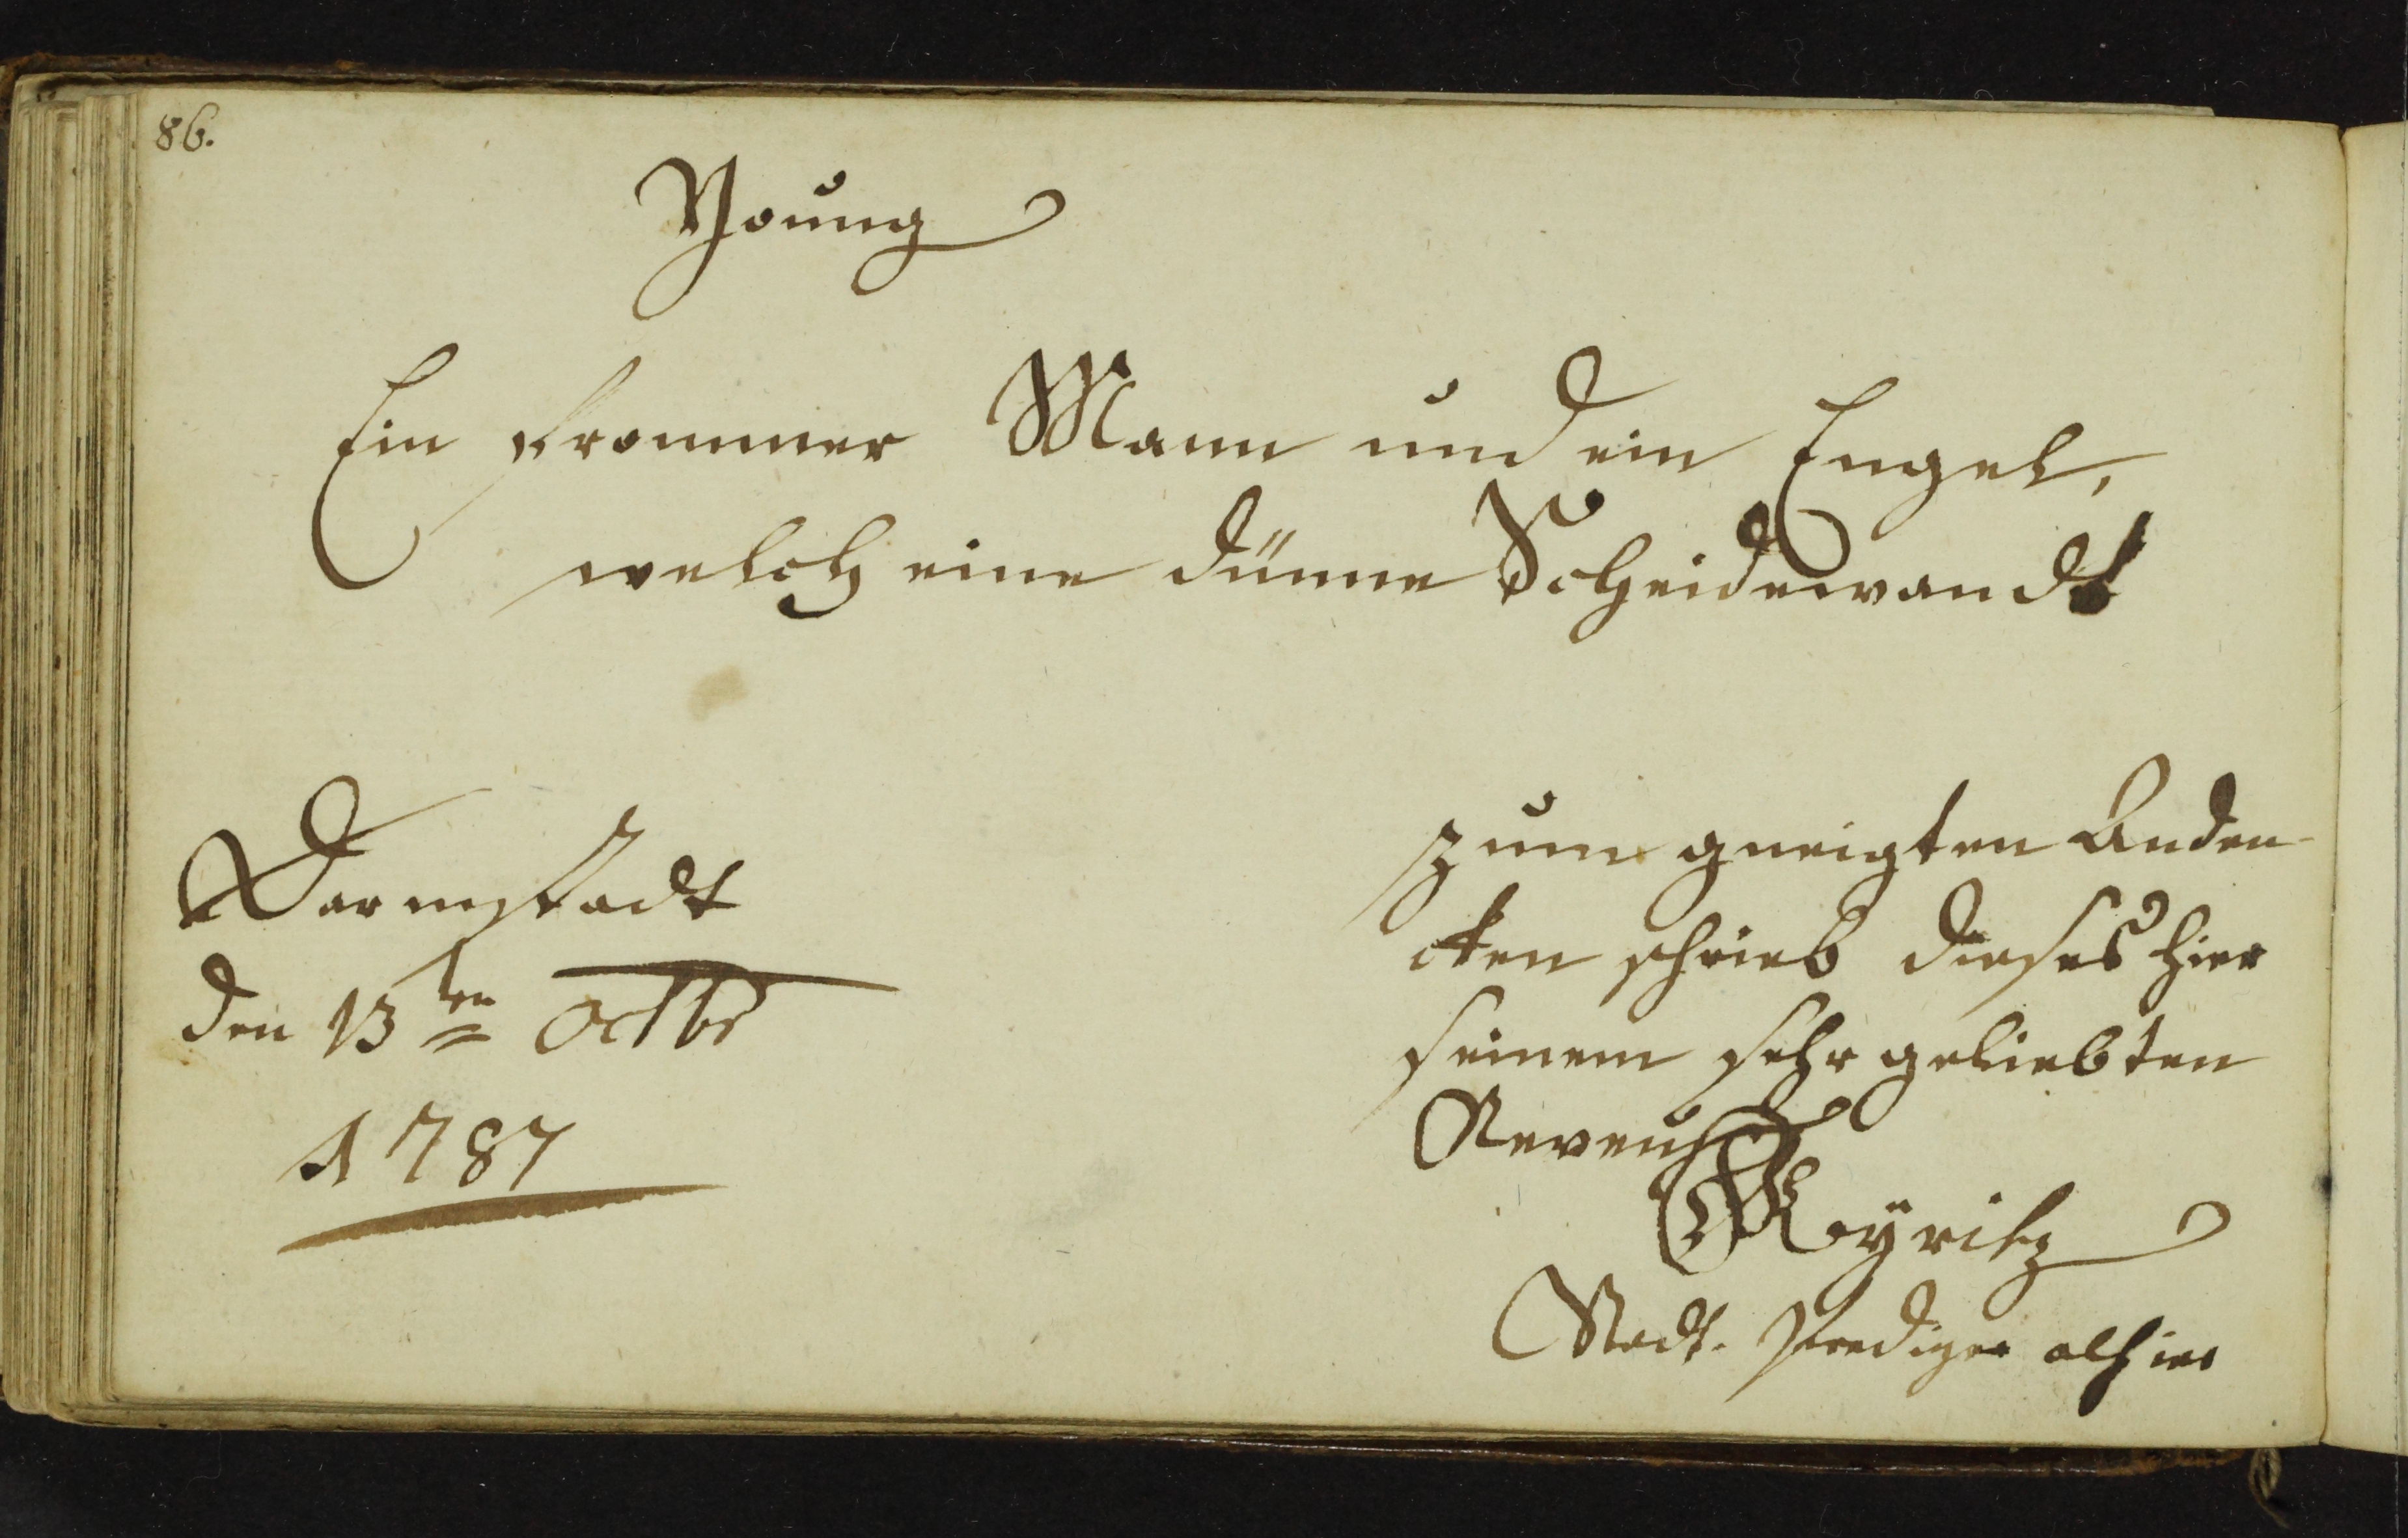 86.
Young
Ein frommer Mann und ein Engel,
welch eine dünne Scheidewandt
Darmstadt
den 13ten Octbr
1787
zum gneigten Anden-
cken schrieb dieses hier
seinem sehr geliebten
Neveu
Stadt. Prediger alhier